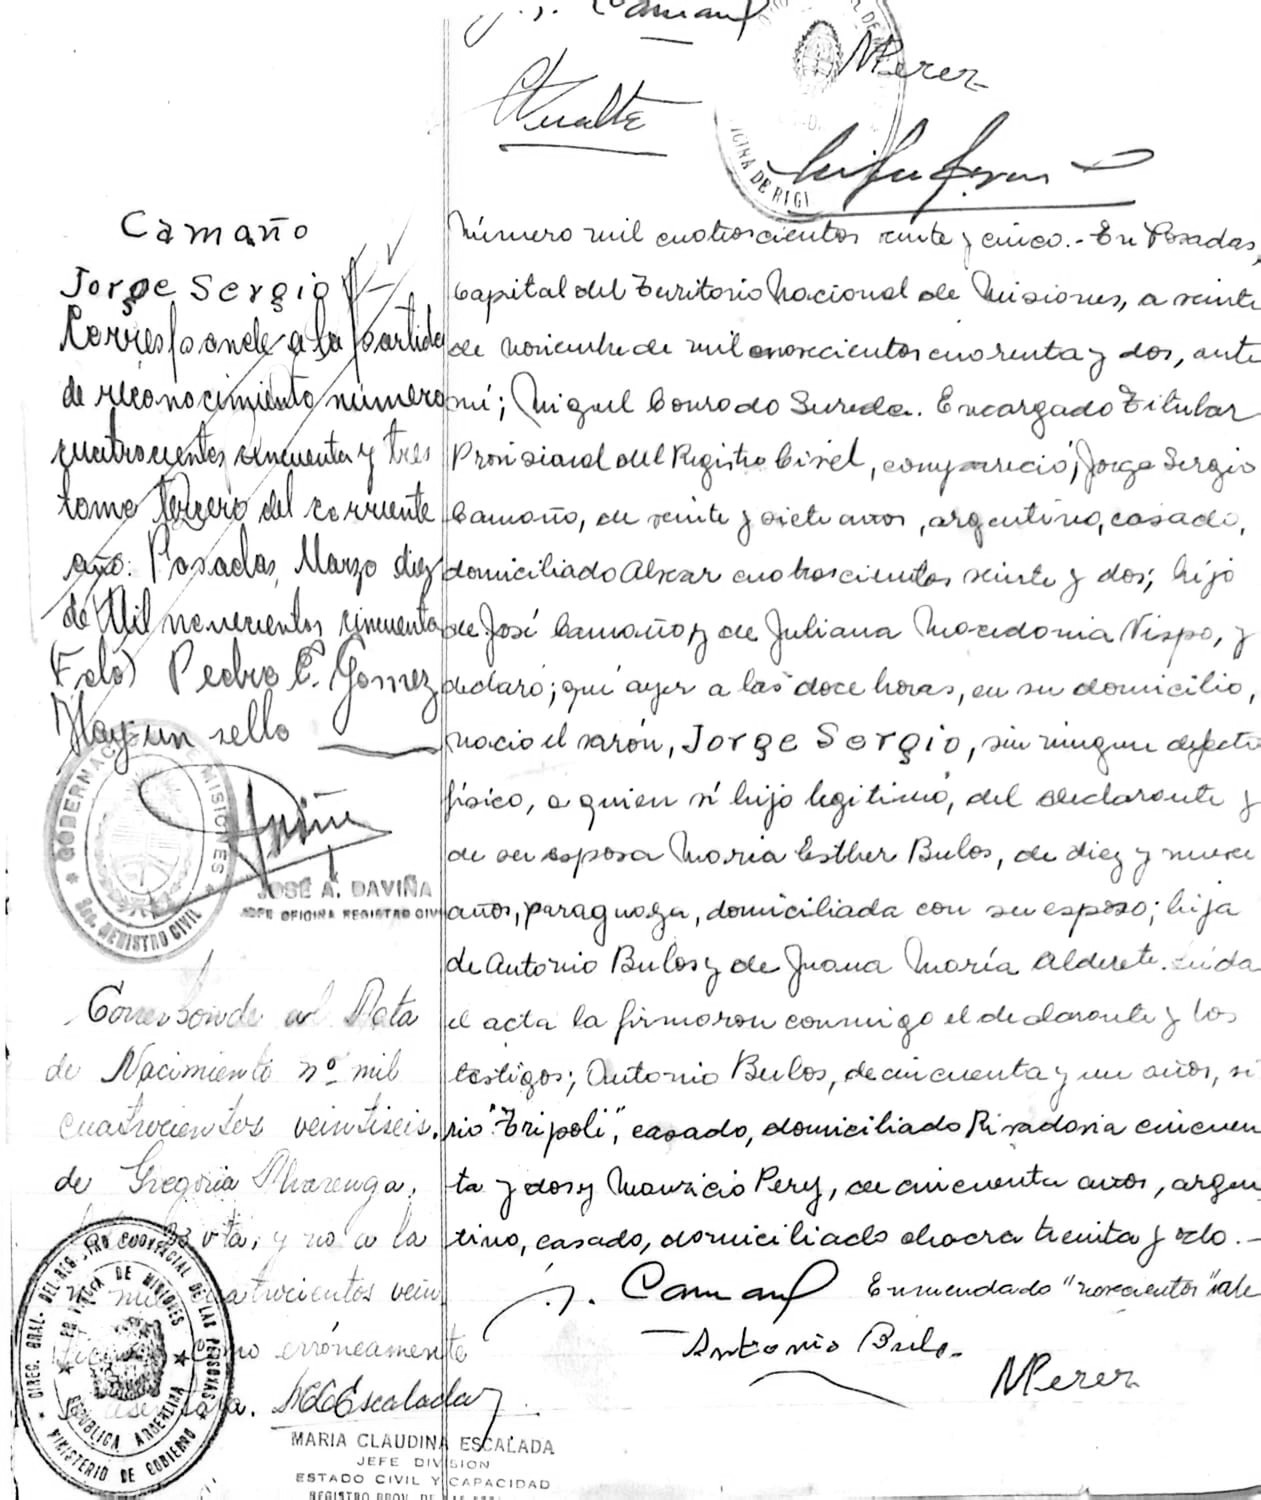 J. S. Camaño
MPerez
OFICINA DE REGI
Camaño
Jorge Sergio
Corresponde a la partida
de reconocimiento número
cuatrocientos cincuenta y tres
tomo tercero del corriente
año: Posadas, Marzo diez
de Mil novecientos cincuenta
(Fdo) Pedro E. Gomez
Hay un sello
GOBERNACION DE MISIONES
REGISTRO CIVIL
JOSÉ A. DAVIÑA
JEFE OFICINA REGISTRO CIVIL
Corresponde al Acta
de Nacimiento nº mil
cuatrocientos veintiseis.
de Gregoria Alvarenga,
vta, y no a la
mil cuatrocientos vein
como erróneamente
MCEscalada
MARIA CLAUDINA ESCALADA
JEFE DIVISION
ESTADO CIVIL Y CAPACIDAD
REGISTRO PROV. DE LAS PERS
DIREC. GRAL. DEL REGISTRO PROVINCIAL DE LAS PERSONAS
PROVINCIA DE MISIONES
REPUBLICA ARGENTINA
MINISTERIO DE GOBIERNO
Número mil cuatroscientos veinte y cinco.- En Posadas,
Capital del Territorio Nacional de Misiones, a veinte
de noviembre de mil novecientos cuarenta y dos, ante
mí; Miguel Conrado Sureda. Encargado Titular
Provisional del Registro Civil, compareció; Jorge Sergio
Camaño, de veinte y siete años, argentino, casado,
domiciliado Alvear cuatroscientos veinte y dos; hijo
de José Camaño y de Juliana Macedonia Vispo, y
declaró; que ayer a las doce horas, en su domicilio,
nació el varón, Jorge Sergio, sin ningun defecto
físico, a quien sí hijo legitimo, del declarante y
de su esposa María Esther Bulos, de diez y nueve
años, paraguaya, domiciliada con su esposo; hija
de Antonio Bulos y de Juana María Alderete. Leida
el acta la firmaron conmigo el declarante y los
testigos; Antonio Bulos, de cincuenta y un años, si
rio "Tripoli", casado, domiciliado Rivadavia cincuen
ta y dos y Mauricio Perez, de cincuenta años, argen
tino, casado, domiciliado chacra treinta y ocho.-
J. S. Camaño Enmendado "novecientos" vale
Antonio Bulos
MPerez